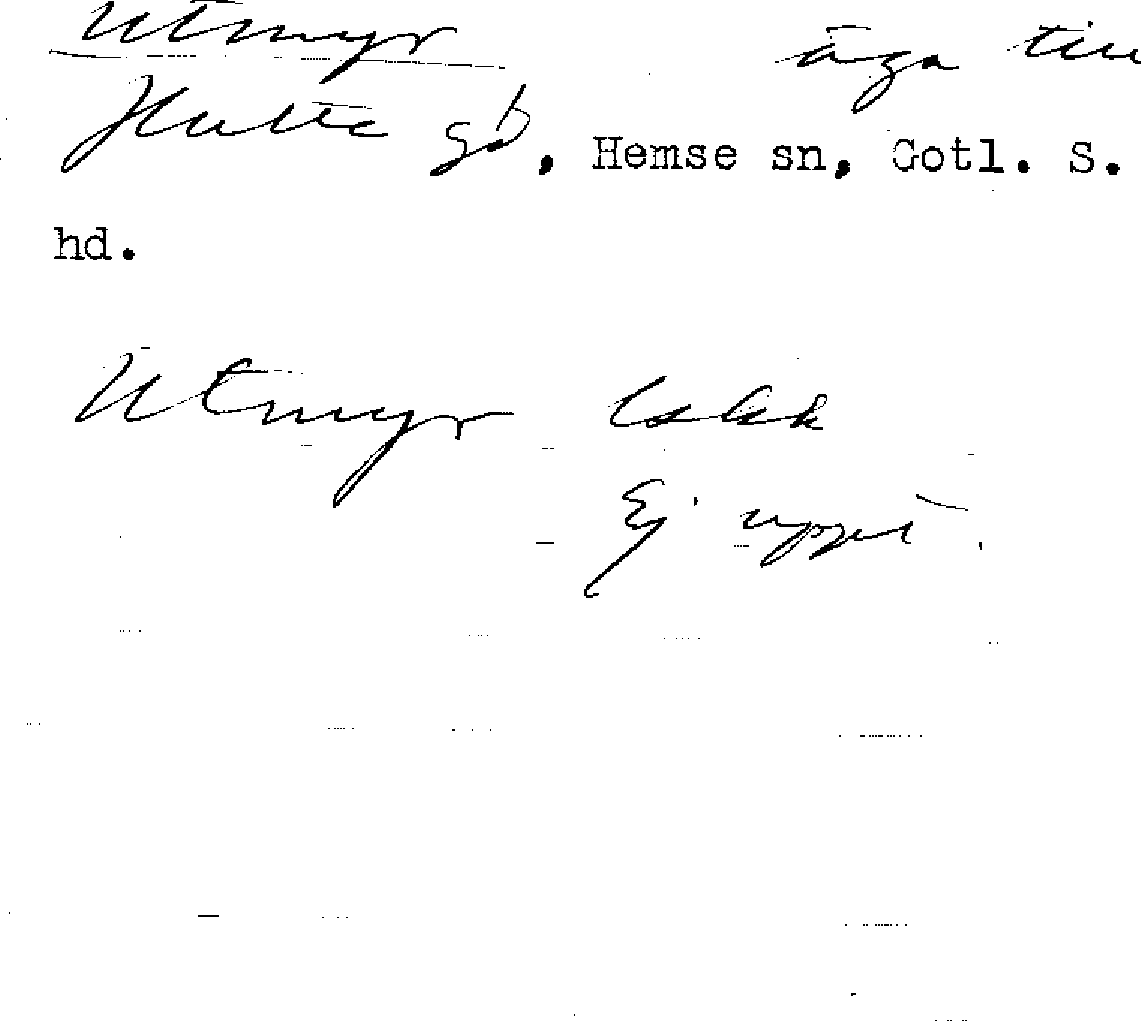 Utmyr äga till
Hulte gd, Hemse sn, Gotl. S.
hd.
Utmyr
Ej uppt.